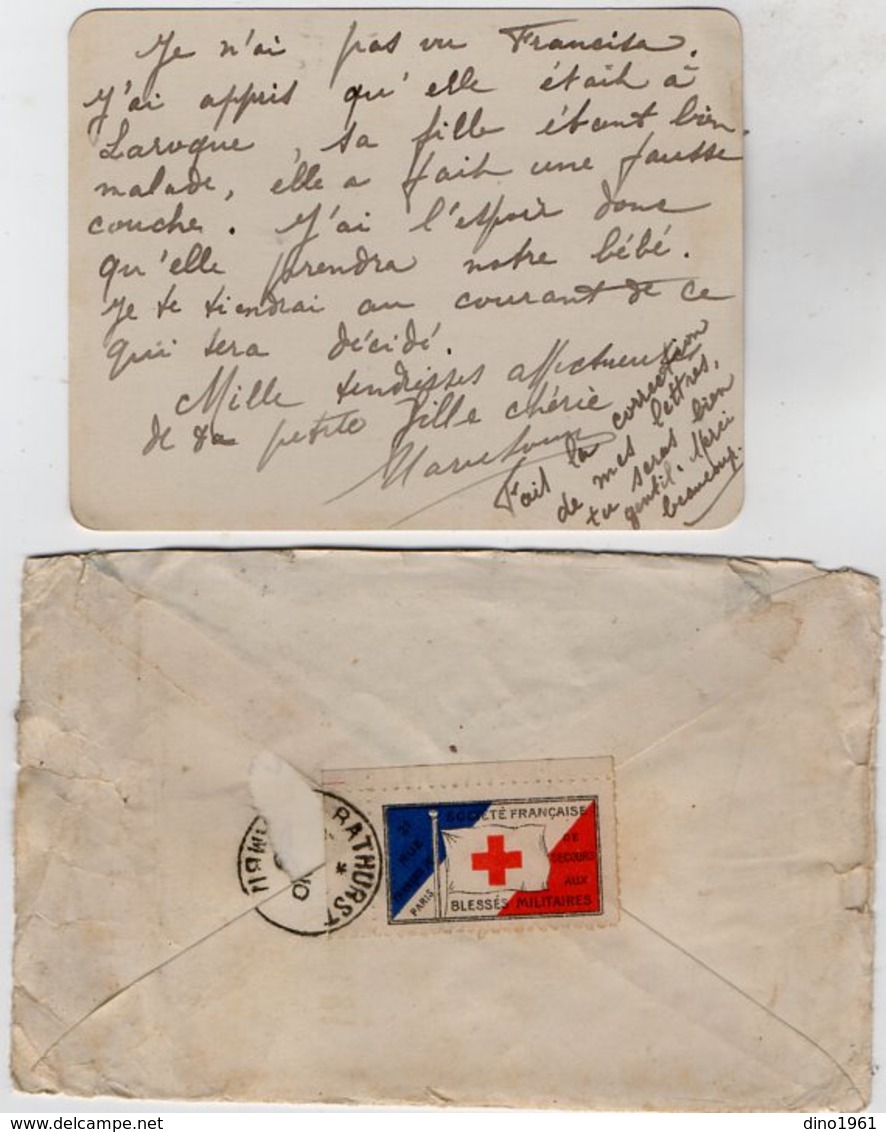 Je n'ai pas vu Francisa.
J'ai appris qu'elle était à
Laroque, sa fille étant bien
malade, elle a fait une fausse
couche. J'ai l'espoir donc
qu'elle prendra notre bébé.
Je te tiendrai au courant de ce
qui sera décidé.
Mille tendresses affectueuses
de ta petite fille chérie
Fait la correction
de mes lettres,
tu seras bien
gentil. Merci
beaucoup.
BATHURST
*
GAMBIA
SOCIÉTÉ FRANÇAISE
DE
SECOURS
AUX
BLESSÉS MILITAIRES
21
RUE
PARIS
dino1961